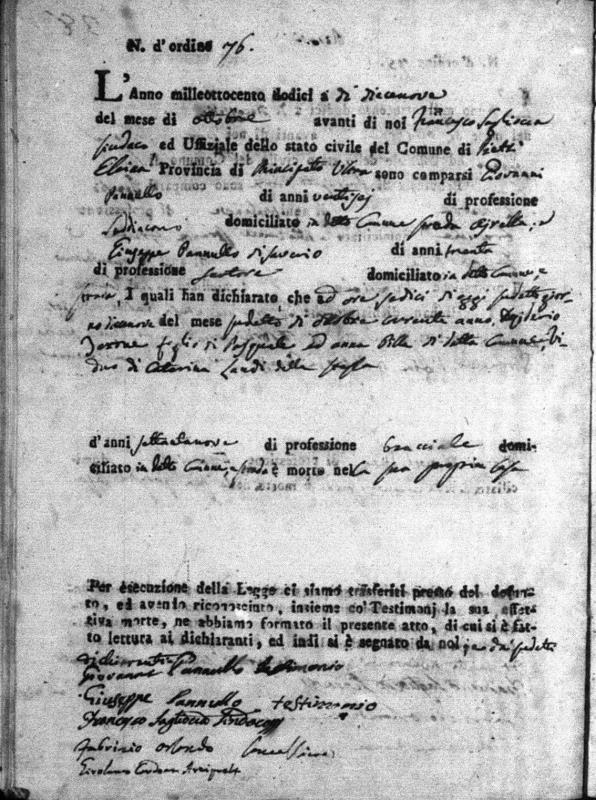 N. d'ordine 76.
L'Anno milleottocento dodici a dì diecenove
del mese di ottobre avanti di noi Francesco Sagliocca
Sindaco ed Uffiziale dello stato civile del Comune di
Provincia di Principato Ultra sono comparsi Giovanni
Pannullo di anni ventisei di professione
domiciliato in detto Comune strada
Giuseppe Pannullo di Saverio di anni trenta
di professione Sartore domiciliato in detto Comune, e
strada, I quali han dichiarato, che ad ore sedici di oggi sudetto gior-
no diecenove del mese sudetto di ottobre corrente anno,
figlio di Pasquale ed Anna di detto Comune, Vi-
duo di Caterina Landi della stessa
d'anni settantanove di professione bracciale domi-
ciliato in detto Comune, e strada è morto nella sua propria casa
Per esecuzione della Legge ci siamo trasferiti presso del defun-
to, ed avendo riconosciuto, insieme co' Testimonj la sua effet-
tiva morte, ne abbiamo formato il presente atto, di cui si è fat-
to lettura ai dichiaranti, ed indi si è segnato da noi, e dai sudetti
dichiaranti
Giovanni Pannullo testimonio
Giuseppe Pannullo testimonio
Francesco Sagliocca Sindaco
Fabrizio Orlando Cancelliere
Girolamo